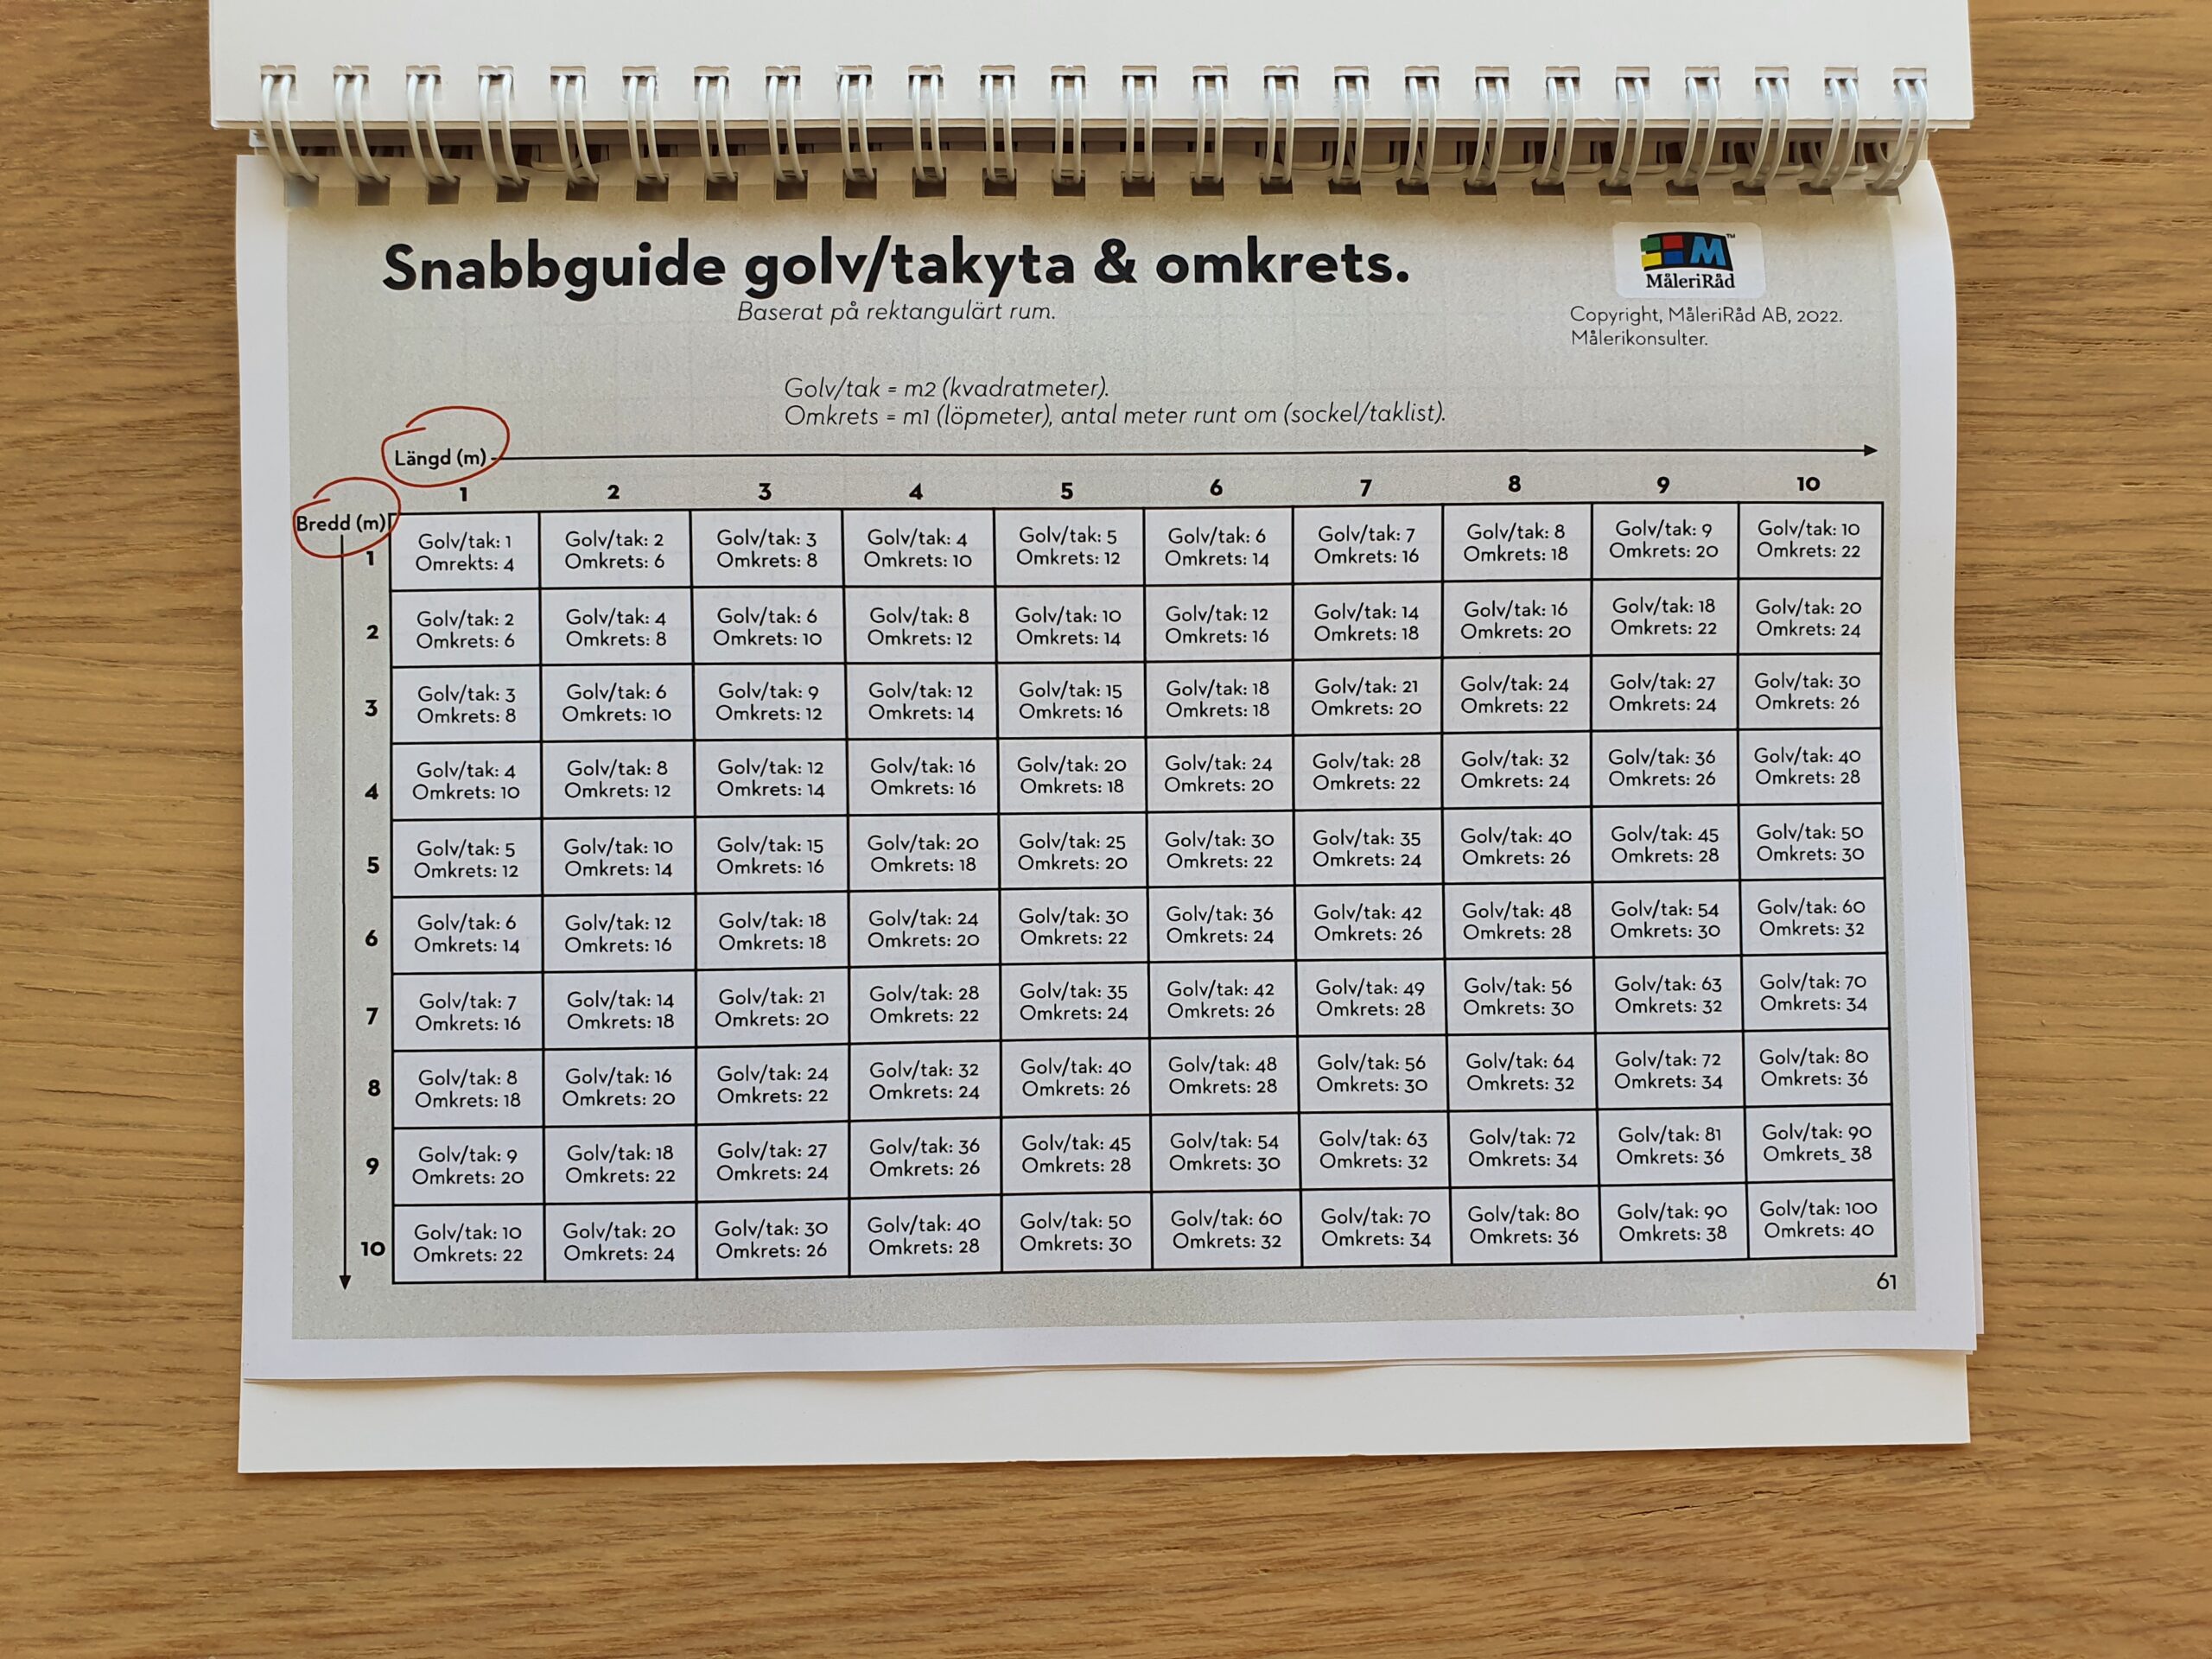 Snabbguide golv/takyta & omkrets.
Baserat på rektangulärt rum.
M™
MåleriRåd
Copyright, MåleriRåd AB, 2022.
Målerikonsulter.
Golv/tak = m2 (kvadratmeter).
Omkrets = m1 (löpmeter), antal meter runt om (sockel/taklist).
Längd (m)
1 2 3 4 5 6 7 8 9 10
Bredd (m)
Golv/tak: 1 Golv/tak: 2 Golv/tak: 3 Golv/tak: 4 Golv/tak: 5 Golv/tak: 6 Golv/tak: 7 Golv/tak: 8 Golv/tak: 9 Golv/tak: 10
1 Omrekts: 4 Omkrets: 6 Omkrets: 8 Omkrets: 10 Omkrets: 12 Omkrets: 14 Omkrets: 16 Omkrets: 18 Omkrets: 20 Omkrets: 22
Golv/tak: 2 Golv/tak: 4 Golv/tak: 6 Golv/tak: 8 Golv/tak: 10 Golv/tak: 12 Golv/tak: 14 Golv/tak: 16 Golv/tak: 18 Golv/tak: 20
2 Omkrets: 6 Omkrets: 8 Omkrets: 10 Omkrets: 12 Omkrets: 14 Omkrets: 16 Omkrets: 18 Omkrets: 20 Omkrets: 22 Omkrets: 24
Golv/tak: 3 Golv/tak: 6 Golv/tak: 9 Golv/tak: 12 Golv/tak: 15 Golv/tak: 18 Golv/tak: 21 Golv/tak: 24 Golv/tak: 27 Golv/tak: 30
3 Omkrets: 8 Omkrets: 10 Omkrets: 12 Omkrets: 14 Omkrets: 16 Omkrets: 18 Omkrets: 20 Omkrets: 22 Omkrets: 24 Omkrets: 26
Golv/tak: 4 Golv/tak: 8 Golv/tak: 12 Golv/tak: 16 Golv/tak: 20 Golv/tak: 24 Golv/tak: 28 Golv/tak: 32 Golv/tak: 36 Golv/tak: 40
4 Omkrets: 10 Omkrets: 12 Omkrets: 14 Omkrets: 16 Omkrets: 18 Omkrets: 20 Omkrets: 22 Omkrets: 24 Omkrets: 26 Omkrets: 28
Golv/tak: 5 Golv/tak: 10 Golv/tak: 15 Golv/tak: 20 Golv/tak: 25 Golv/tak: 30 Golv/tak: 35 Golv/tak: 40 Golv/tak: 45 Golv/tak: 50
5 Omkrets: 12 Omkrets: 14 Omkrets: 16 Omkrets: 18 Omkrets: 20 Omkrets: 22 Omkrets: 24 Omkrets: 26 Omkrets: 28 Omkrets: 30
Golv/tak: 6 Golv/tak: 12 Golv/tak: 18 Golv/tak: 24 Golv/tak: 30 Golv/tak: 36 Golv/tak: 42 Golv/tak: 48 Golv/tak: 54 Golv/tak: 60
6 Omkrets: 14 Omkrets: 16 Omkrets: 18 Omkrets: 20 Omkrets: 22 Omkrets: 24 Omkrets: 26 Omkrets: 28 Omkrets: 30 Omkrets: 32
Golv/tak: 7 Golv/tak: 14 Golv/tak: 21 Golv/tak: 28 Golv/tak: 35 Golv/tak: 42 Golv/tak: 49 Golv/tak: 56 Golv/tak: 63 Golv/tak: 70
7 Omkrets: 16 Omkrets: 18 Omkrets: 20 Omkrets: 22 Omkrets: 24 Omkrets: 26 Omkrets: 28 Omkrets: 30 Omkrets: 32 Omkrets: 34
Golv/tak: 8 Golv/tak: 16 Golv/tak: 24 Golv/tak: 32 Golv/tak: 40 Golv/tak: 48 Golv/tak: 56 Golv/tak: 64 Golv/tak: 72 Golv/tak: 80
8 Omkrets: 18 Omkrets: 20 Omkrets: 22 Omkrets: 24 Omkrets: 26 Omkrets: 28 Omkrets: 30 Omkrets: 32 Omkrets: 34 Omkrets: 36
Golv/tak: 9 Golv/tak: 18 Golv/tak: 27 Golv/tak: 36 Golv/tak: 45 Golv/tak: 54 Golv/tak: 63 Golv/tak: 72 Golv/tak: 81 Golv/tak: 90
9 Omkrets: 20 Omkrets: 22 Omkrets: 24 Omkrets: 26 Omkrets: 28 Omkrets: 30 Omkrets: 32 Omkrets: 34 Omkrets: 36 Omkrets_ 38
Golv/tak: 10 Golv/tak: 20 Golv/tak: 30 Golv/tak: 40 Golv/tak: 50 Golv/tak: 60 Golv/tak: 70 Golv/tak: 80 Golv/tak: 90 Golv/tak: 100
10 Omkrets: 22 Omkrets: 24 Omkrets: 26 Omkrets: 28 Omkrets: 30 Omkrets: 32 Omkrets: 34 Omkrets: 36 Omkrets: 38 Omkrets: 40
61